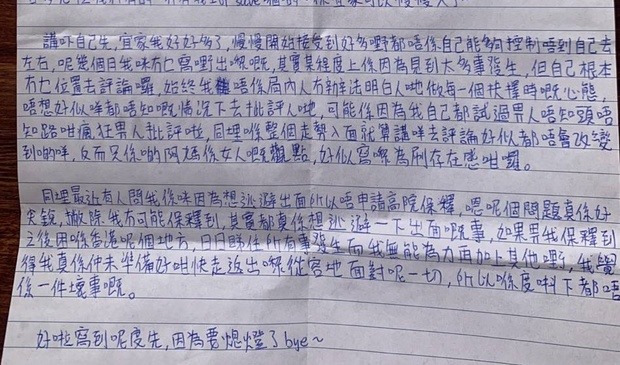 講吓自己先，宜家我好好多了，慢慢開始接受到好多嘢都唔係自己能夠控制唔到自己去
左右，呢幾個日我咪冇乜寫嘢出嚟嘅，其實某程度上係因為見到太多事發生，但自己根本
冇乜位置去評論囉，始終我唔係局內人冇辦法明白人哋做每一個抉擇時嘅心態，
唔想好似咩都唔知嘅情況下去批評人哋，可能係因為我自己都試過畀人唔知頭唔
知路咁瘋狂畀人批評啦，同埋係整個走勢入面就算講咩去評論好似都唔會改變
到啲咩，反而只係啲阿媽係女人嘅觀點，好似寫嚟為刷存在感咁囉。
同埋最近有人問我係咪因為想逃避出面所以唔申請高院保釋，嗯呢個問題真係好
尖銳，撇除我冇可能保釋到，其實都真係想逃避一下出面嘅事，如果畀我保釋到
之後困喺香港呢個地方，日日睇住所有事發生而我無能為力再加上其他嘢，我覺
得我真係仲未準備好咁快走返出嚟從容地面對呢一切，所以喺度唞下都唔
係一件壞事嘅。
好啦寫到呢度先，因為要熄燈了bye~